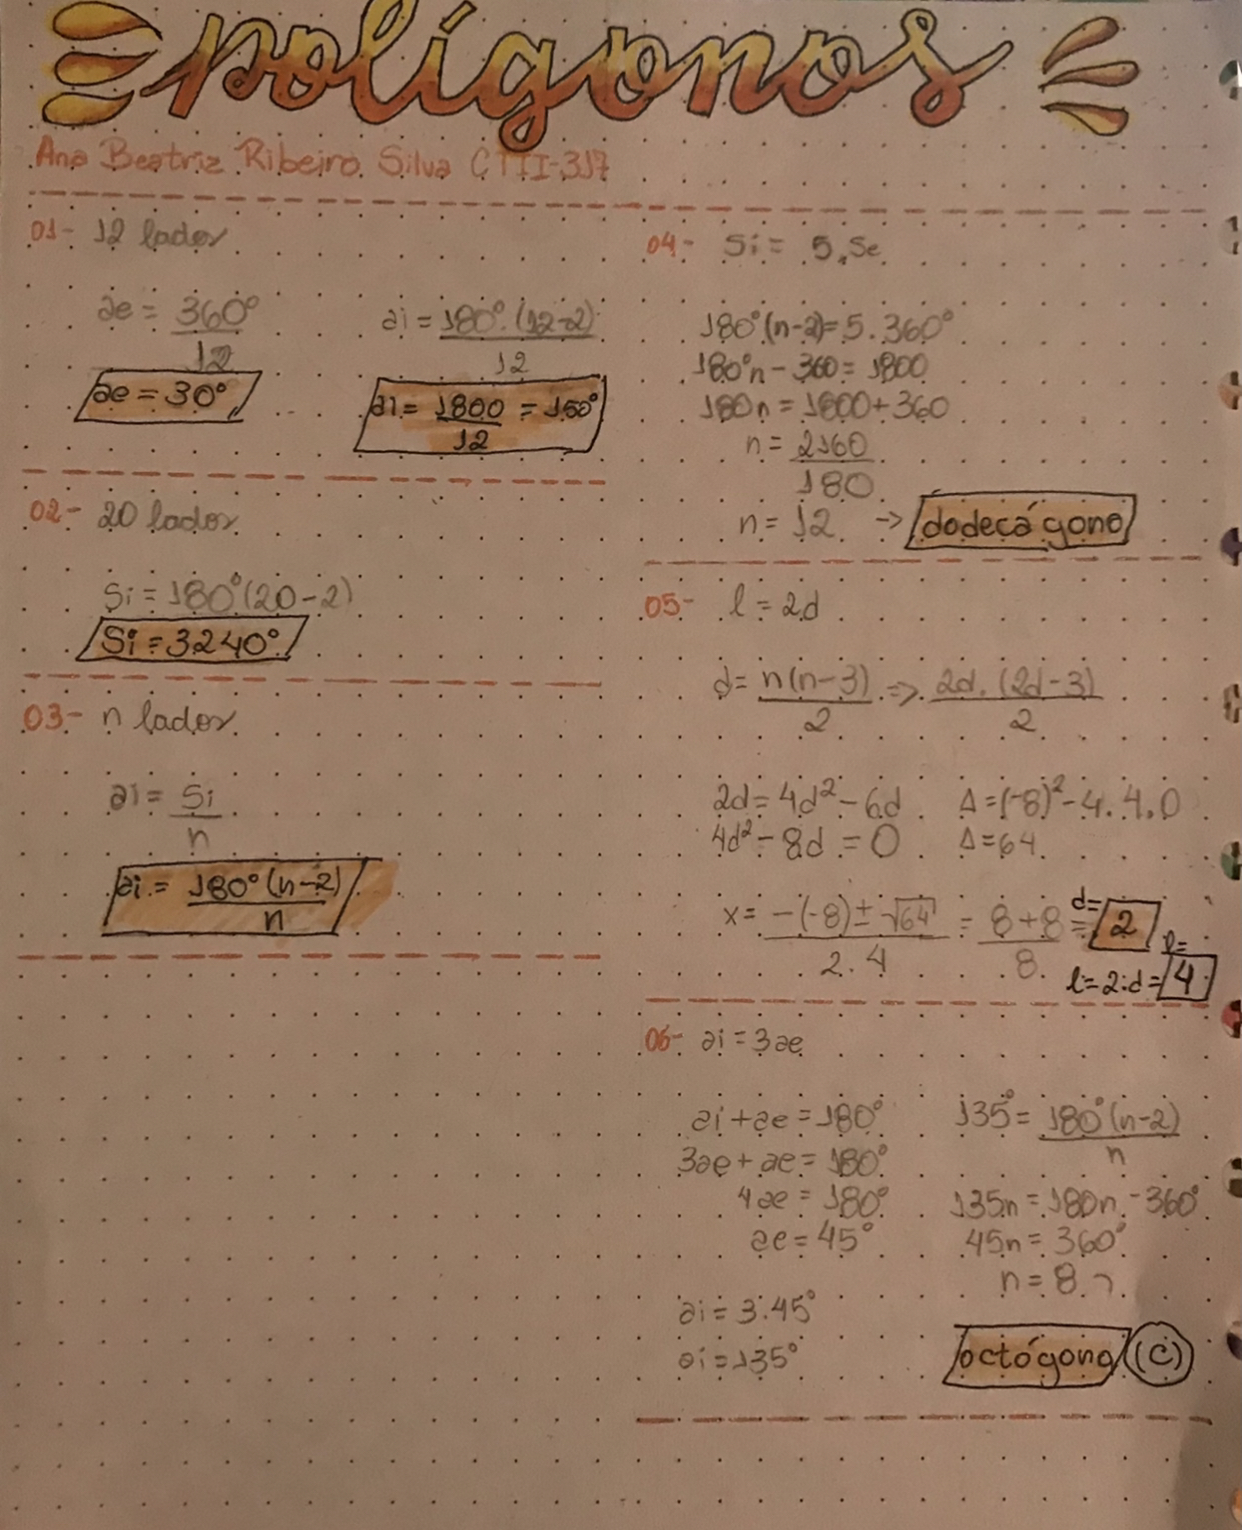 polígonos
Ana Beatriz Ribeiro Silva CTII-317
01- 12 lados
ae = 360°
12
ae = 30°
ai = 180° . (12-2)
12
ai = 1800 = 150°
12
02- 20 lados
Si = 180°(20-2)
Si = 3240°
03- n lados
ai = Si
n
ai = 180° (n-2)
n
04- Si = 5.Se
180°(n-2) = 5.360°
180°n - 360 = 1800
180n = 1800+360
n = 2160
180
n = 12 → dodecágono
05- l = 2d
d = n(n-3) => 2d. (2d-3)
2 2
2d = 4d² - 6d
4d² - 8d = 0
Δ = (-8)² - 4.4.0
Δ = 64
x = -(-8) ± √64 = 8+8 = d= 2
2.4 8
l=
l = 2.d = 4
06- ai = 3ae
ai + ae = 180°
3ae + ae = 180°
4ae = 180°
ae = 45°
ai = 3.45°
ai = 135°
135° = 180°(n-2)
n
135n = 180n - 360°
45n = 360°
n = 8
octógono (C)